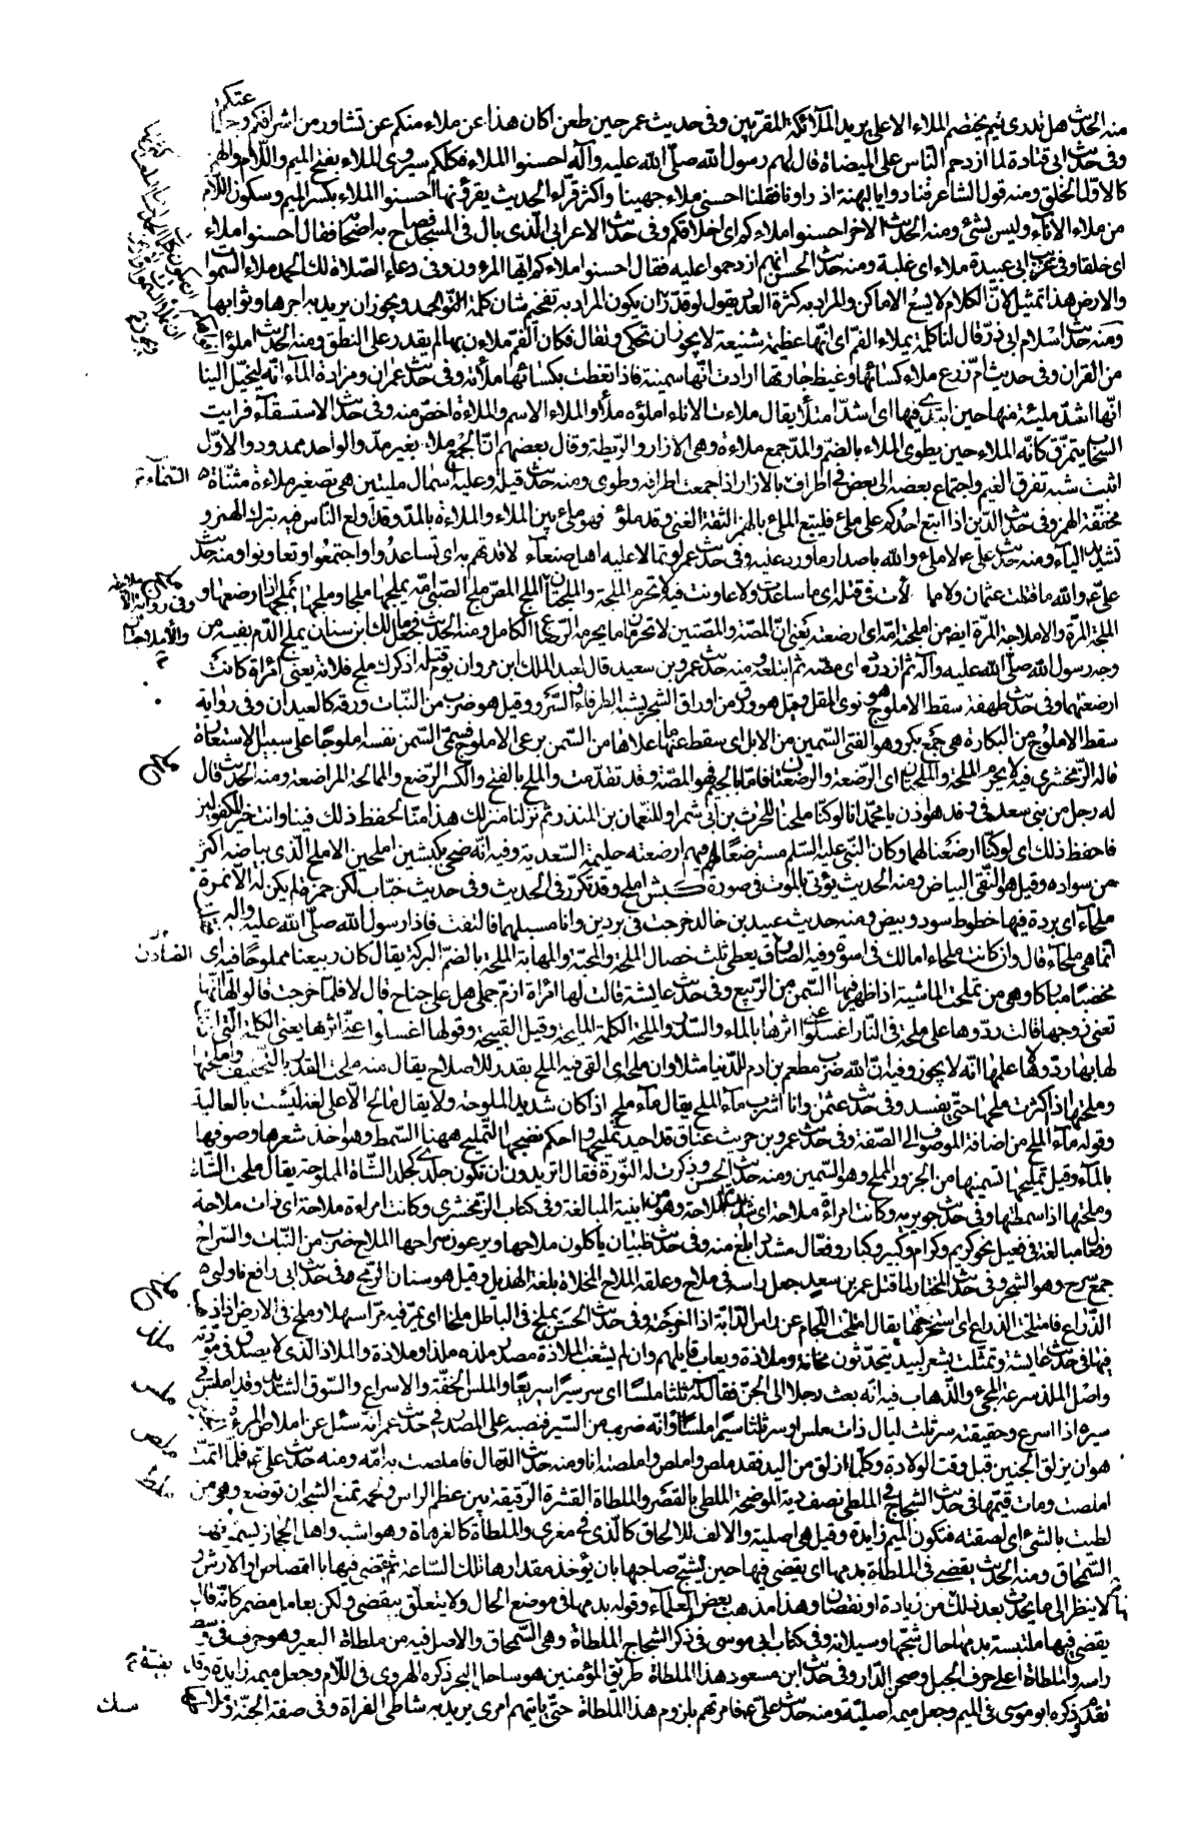 منه الحديث هل تدرى فيم يختصم الملاء الاعلى يريد الملآئكة المقربين وفى حديث عمر حين طعن اكان هذا عن ملاء منكم عن تشاور من اشرافكم وجما عتكم
وفى حديث ابى قتادة لما ازدحم الناس على الميضاة قال لهم رسول الله صلى الله عليه وآله احسنوا الملاء فكلكم سيروى الملاء بفتح الميم واللام والهمز
كالاول الخلق ومنه قول الشاعر فنادوا يالبهثة اذ راونا فقلنا احسنى ملاء جهينا واكثر قرآء الحديث يقرؤنها احسنوا الملاء بكسر الميم وسكون اللام
من ملاء الانآء وليس بشئ ومنه الحديث الاخر احسنوا املاءكم اى اخلاقكم وفى حديث الاعرابى الذى بال فى المسجد فصاح به اصحابه فقال احسنوا املاء
اى خلقا وفى غريب ابى عبيدة ملاء اى غلبة ومنه حديث الحسن انهم ازدحموا عليه فقال احسنوا ملاءكم ايها المرءون وفى دعاء الصلاة لك الحمد ملاء السموات
والارض هذا تمثيل لان الكلام لا يسع الاماكن والمراد به كثرة العدد يقول لو قدر ان يكون المراد به تفخيم شان كلمة الحمد ويجوز ان يريد به اجرها وثوابها
ومنه حديث اسلام ابى ذر قال لنا كلمة بملاء الفم اى انها عظيمة شنيعة لا يجوز ان تحكى وتقال فكان الفم ملاءن بها لا يقدر على النطق ومنه الحديث املؤا
من القران وفى حديث ام زرع ملاء كسائها وغيظ جارتها ارادت انها سمينة فاذا تغطت بكسائها ملأته وفى حديث عمران ومزادة المآء انه ليخيل الينا
انها اشد ملئة منها حين ابتدى فيها اى اشد امتلأ يقال ملاءت الاناء املؤه ملأ والملاء الاسم والملاءة اخص منه وفى حديث الاستسقآء فرايت
السحاب يتمزق كانه الملاء حين يطوى الملاء بالضم والمد جمع ملاءة وهى الازار والريطة وقال بعضهم ان الجمع ملاء بغير مد والواحد ممدود والاول
اثبت شبه تفرق الغيم واجتماع بعضه الى بعض فى اطراف السمآء بالازار اذا جمعت اطرافه وطوى ومنه حديث قيلة وعليه اسمال مليتين هى تصغير ملاءة مثناة
مخففة الهمز وفى حديث الدين اذا اتبع احدكم على ملئ فليتبع الملئ بالهمز الثقة الغنى وقد ملؤ فهو ملئ بين الملاء والملاءة بالمد وقد اولع الناس فيه بترك الهمز و
تشديد اليآء ومنه حديث على ع لا ملئ والله باصدار ما ورد عليه وفى حديث عمر لو تمالا عليه اهل صنعآء لاقدتهم به اى تساعدوا واجتمعوا وتعاونوا ومنه حديث
على ع والله ما قتلت عثمان ولا مالأت فى قتله اى ما ساعدت ولا عاونت فيه لا تحرم الملحة والملحتان الملج المص ملج الصبى امه يملجها ملجا وملجها يملجها اذا رضعها و
الملجة المرة والاملاجة المرة ايضا من املجته امه اى ارضعته يعنى ان المصة والمصتين لا تحرمان ما يحرمه الرضاع الكامل ومنه الحديث فجعل مالك ابن سنان يملج الدم بفيه من
وجه رسول الله صلى الله عليه وآله ثم ازدرده اى مصه ثم ابتلعه ومنه حديث عمرو بن سعيد قال لعبد الملك ابن مروان يوم قتله اذكرك ملج فلانة يعنى امرأة كانت
ارضعتهما وفى حديث طهفة سقط الاملوج هو نوى المقل وقيل هو ورق من اوراق الشجر يشبه الطرفاء والسرو وقيل هو ضرب من النبات ورقه كالعيدان وفى رواية
سقط الاملوج من البكارة هى جمع بكر وهو الفتى السمين من الابل اى سقط عنها ما علاها من السمن برعى الاملوج فسمى السمن نفسه املوجا على سبيل الاستعارة
قاله الزمخشرى فيه لا يحرم الملحة والملحتان اى الرضعة والرضعتان فاما بالجيم فهو المصة وقد تقدمت والملح بالفتح والكسر الرضع والممالحة المراضعة ومنه الحديث قال
له رجل من بنى سعد فى وفد هوازن يا محمد انا لو كنا ملحنا للحرث بن ابى شمر او للنعمان بن المنذر ثم نزل منزلك هذا منا لحفظ ذلك فينا وانت خير المكفولين
فاحفظ ذلك اى لو كنا ارضعنا لهما وكان النبى عليه السلم مسترضعا فيهم ارضعته حليمة السعدية وفيه انه ضحى بكبشين املحين الاملح الذى بياضه اكثر
من سواده وقيل هو النقى البياض ومنه الحديث يؤتى بالموت فى صورة كبش املح وقد تكرر فى الحديث وفى حديث خباب لكن حمزة لم يكن له الا نمرة
ملحآء اى بردة فيها خطوط سود وبيض ومنه حديث عبيد بن خالد خرجت فى بردين وانا مسبلهما فالتفت فاذا رسول الله صلى الله عليه واله
انما هى ملحآء قال وان كانت ملحاء امالك فى اسوة وفيه الصادق يعطى ثلث خصال الملحة والمحبة والمهابة الملحة بالضم البركة يقال كان ربيعنا مملوحا فيه اى
مخصبا مباركا وهى من تملحت الماشية اذا ظهر فيها السمن من الربيع وفى حديث عايشة قالت لها امرأة ازم جملى هل على جناح قال لا فلما خرجت قالوا لها انها
تعنى زوجها قالت ردوها على ملحة فى النار اغسلوا عنى اثرها بالماء والسدر والملحة الكلمة المليحة وقيل القبيحة وقولها اغسلوا عنى اثرها يعنى الكلمة التى اذنت
لها بها ردوها لاعلمها انه لا يجوز وفيه ان الله ضرب مطعم بن ادم للدنيا مثلا وان ملحه اى القى فيه الملح بقدر للاصلاح يقال منه ملحت القدر بالتخفيف واملحتها
وملحتها اذا اكثرت ملحها حتى يفسد وفى حديث عثمن وانا اشرب مآء الملح يقال مآء ملح اذا كان شديد الملوحة ولا يقال مالح الا على لغة ليست بالعالية
وقوله مآء الملح من اضافة الموصوف الى الصفة وفى حديث عمرو بن حريث عناق قد اجيد تمليحها واحكم نضجها التمليح ههنا السمط وهو اخذ شعرها وصوفها
بالمآء وقيل تمليحها تسمينها من الجزور المملح وهو السمين ومنه حديث الحسن وذكرت له النورة فقال اتريدون ان تكون جلدى كجلد الشاة المملوحة يقال ملحت الشاة
وملحتها اذا سمطتها وفى حديث جويرية وكانت امراة ملاحة اى شديدة الملاحة وهو من ابنية المبالغة وفى كتاب الزمخشرى وكانت امراءة ملاحة اى ذات ملاحة
وفعال مبالغة فى فعيل نحو كريم وكرام وكبير وكبار وفعال مشدد ابلغ منه وفى حديث ظبيان ياكلون ملاحها ويرعون سراحها الملاح ضرب من النبات والسراح
جمع سرح وهو الشجر وفى حديث المختار لما قتل عمر بن سعد جعل راسه فى ملاح وعلقه الملاح المخلاة بلغة الهذيل وقيل هو سنان الرمح وفى حديث ابى رافع ناولنى
الذراع فامتلخت الذراع اى استخرجتها يقال امتلخت اللجام عن راس الدابة اذا اخرجته وفى حديث الحسن يملخ فى الباطل ملخا اى يمر فيه مرا سهلا وملخ فى الارض اذا ذهب
فيها فى حديث عايشة وتمثلت بشعر لبيد يتحدثون مخانة وملاذة ويعاب قايلهم وان لم يشغب الملاذة مصدر ملذه ملذا وملاذة والملاذ الذى لا يصدق فى مودته
واصل الملذ سرعة المجئ والذهاب فيه انه بعث رجلا الى الجن فقال له سر ثلثا ملسا اى سر سيرا سريعا والملس الخفة والاسراع والسوق الشديد وقد املس فى
سيره اذا اسرع وحقيقته سر ثلث ليال ذات ملس او سر ثلثا سيرا املسا او انه ضرب من السير فنصبه على المصدر فى حديث عمر انه سئل عن املاص المراءة الجنين
هو ان يزلق الجنين قبل وقت الولادة وكلما زلق من اليد فقد ملص واملص واملصته انا ومنه حديث الدجال فاملصت به امه ومنه حديث على ع فلما اتمت
املصت ومات قيمها فى حديث الشجاج فى الملطى نصف دية الموضحة الملطى بالقصر والملطاة القشرة الرقيقة بين عظم الراس ولحمه تمنع الشجة ان توضح وهى من
لطيت بالشئ اى لصقته فتكون الميم زايدة وقيل هى اصلية والالف للالحاق كالذى فى معزى والملطاة كالعزهاة وهو اشبه واهل الحجاز يسمونها
السمحاق ومنه الحديث يقضى فى الملطاة بدمها اى يقضى فيها حين يشج صاحبها بان يؤخذ مقدارها تلك الساعة ثم يقضى فيها بالقصاص او الارش و
لا ينظر الى ما يحدث بعد ذلك من زيادة او نقصان وهذا مذهب بعض العلمآء وقوله بدمها فى موضع الحال ولا يتعلق بيقضى ولكن بعامل مضمر كانه قال
يقضى فيها ملتبسة بدمها حال شجها وسيلانه وفى كتاب ابى موسى فى ذكر الشجاج الملطاة وهى السمحاق والاصل فيه من ملطاة البعير وهو حرف فى وسط
راسه والملطاة اعلى حرف الجبل وصحن الدار وفى حديث ابن مسعود هذا الملطاة طريق بقية المؤمنين هو ساحل البحر ذكره الهروى فى اللام وجعل ميمه زايدة وقد
تقدم وذكره ابو موسى فى الميم وجعل ميمه اصلية ومنه حديث على ع فامرتهم بلزوم هذا الملطاة حتى ياتيهم امرى يريد به شاطئ الفراة وفى صفة الجنة وملاطها
مسك
ملج
ملح
ملخ
ملذ
ملس
ملص
ملط